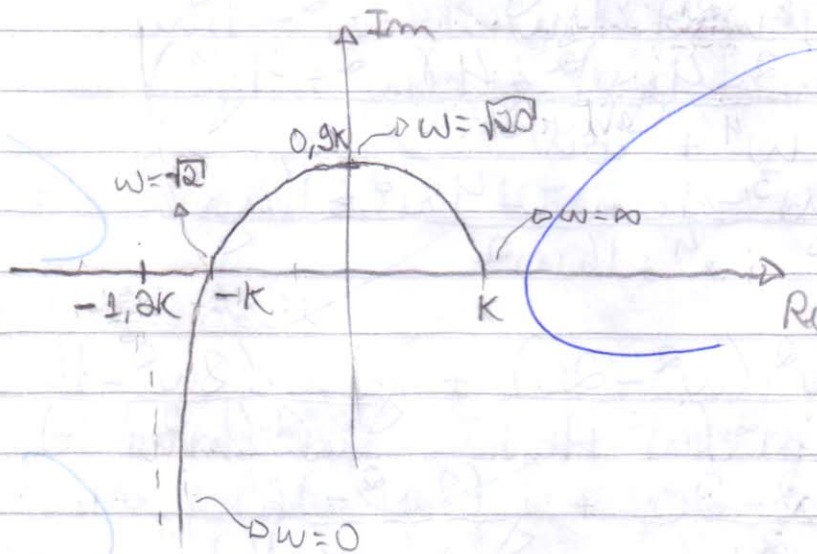 Im
0,9K
ω=√20
ω=√2
ω=∞
-1,2K
-K
K
Re
ω=0